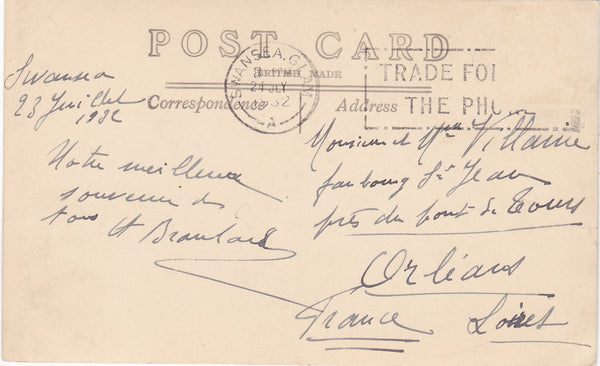 POST CARD
BRITISH MADE
Correspondence
Address
SWANSEA. GLAM
24 JLY
1932
A
TRADE FOL
THE PHO
Swansea
23 Juillet
1932
Notre meilleur
souvenir de
tous
Monsieur et Mme Villaire
faubourg St Jean
près du pont de Tours
Orléans
France Loiret